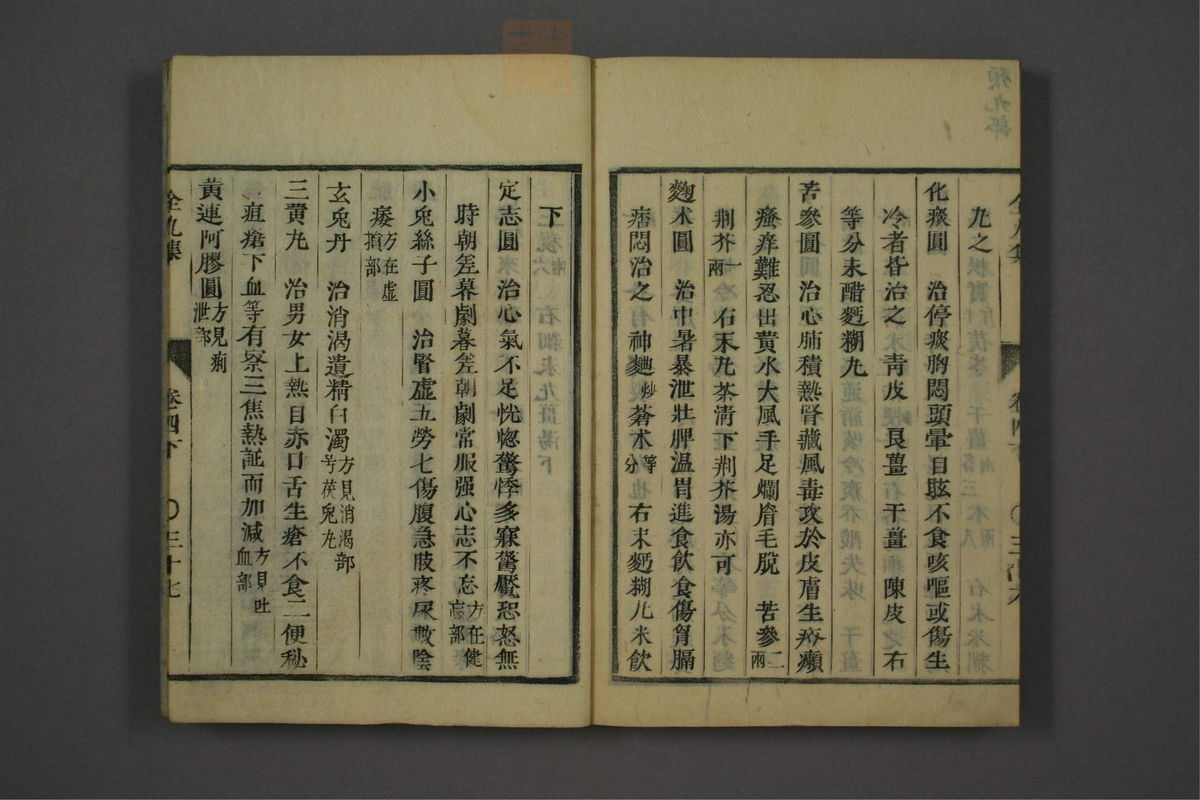 化痰圓　治停痰胸悶頭暈目眩不食咳嘔或傷生
冷者昏治之　靑皮　良薑　干薑　陳皮　右
等分末醋麪糊丸
苦參圓　治心肺積熱腎藏風毒攻於皮膚生疥癩
瘙痒難忍出黃水大風手足爛眉毛脫　苦參二兩
荊芥一兩　右末丸茶淸下荊芥湯亦可
麴术圓　治中暑暴泄壯脾溫胃進食飮食傷胷膈
痞悶治之　神麯炒　蒼术等分　右末麪糊丸米飮
下
定志圓　治心氣不足恍惚驚悸多寐驚魘恐怒無
時朝差暮劇暮差朝劇常服强心志不忘方在健忘部
小兎絲子圓　治腎虛五勞七傷腹急肢疼尿數陰
痿方在虛損部
玄兎丹　治消渴遺精白濁方見消渴部号茯兎丸
三黃丸　治男女上熱目赤口舌生瘡不食二便秘
疽瘡下血等有察三焦熱証而加減方見吐血部
黃連阿膠圓方見痢泄部
全九集　卷四下　〇三十七